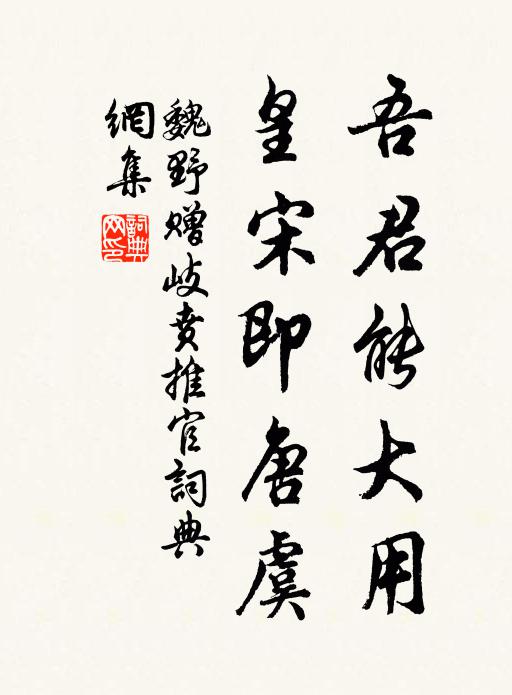 吾君能大用
皇宋即唐虞
魏野赠岐贲推官詞典
網集
詞典
网印